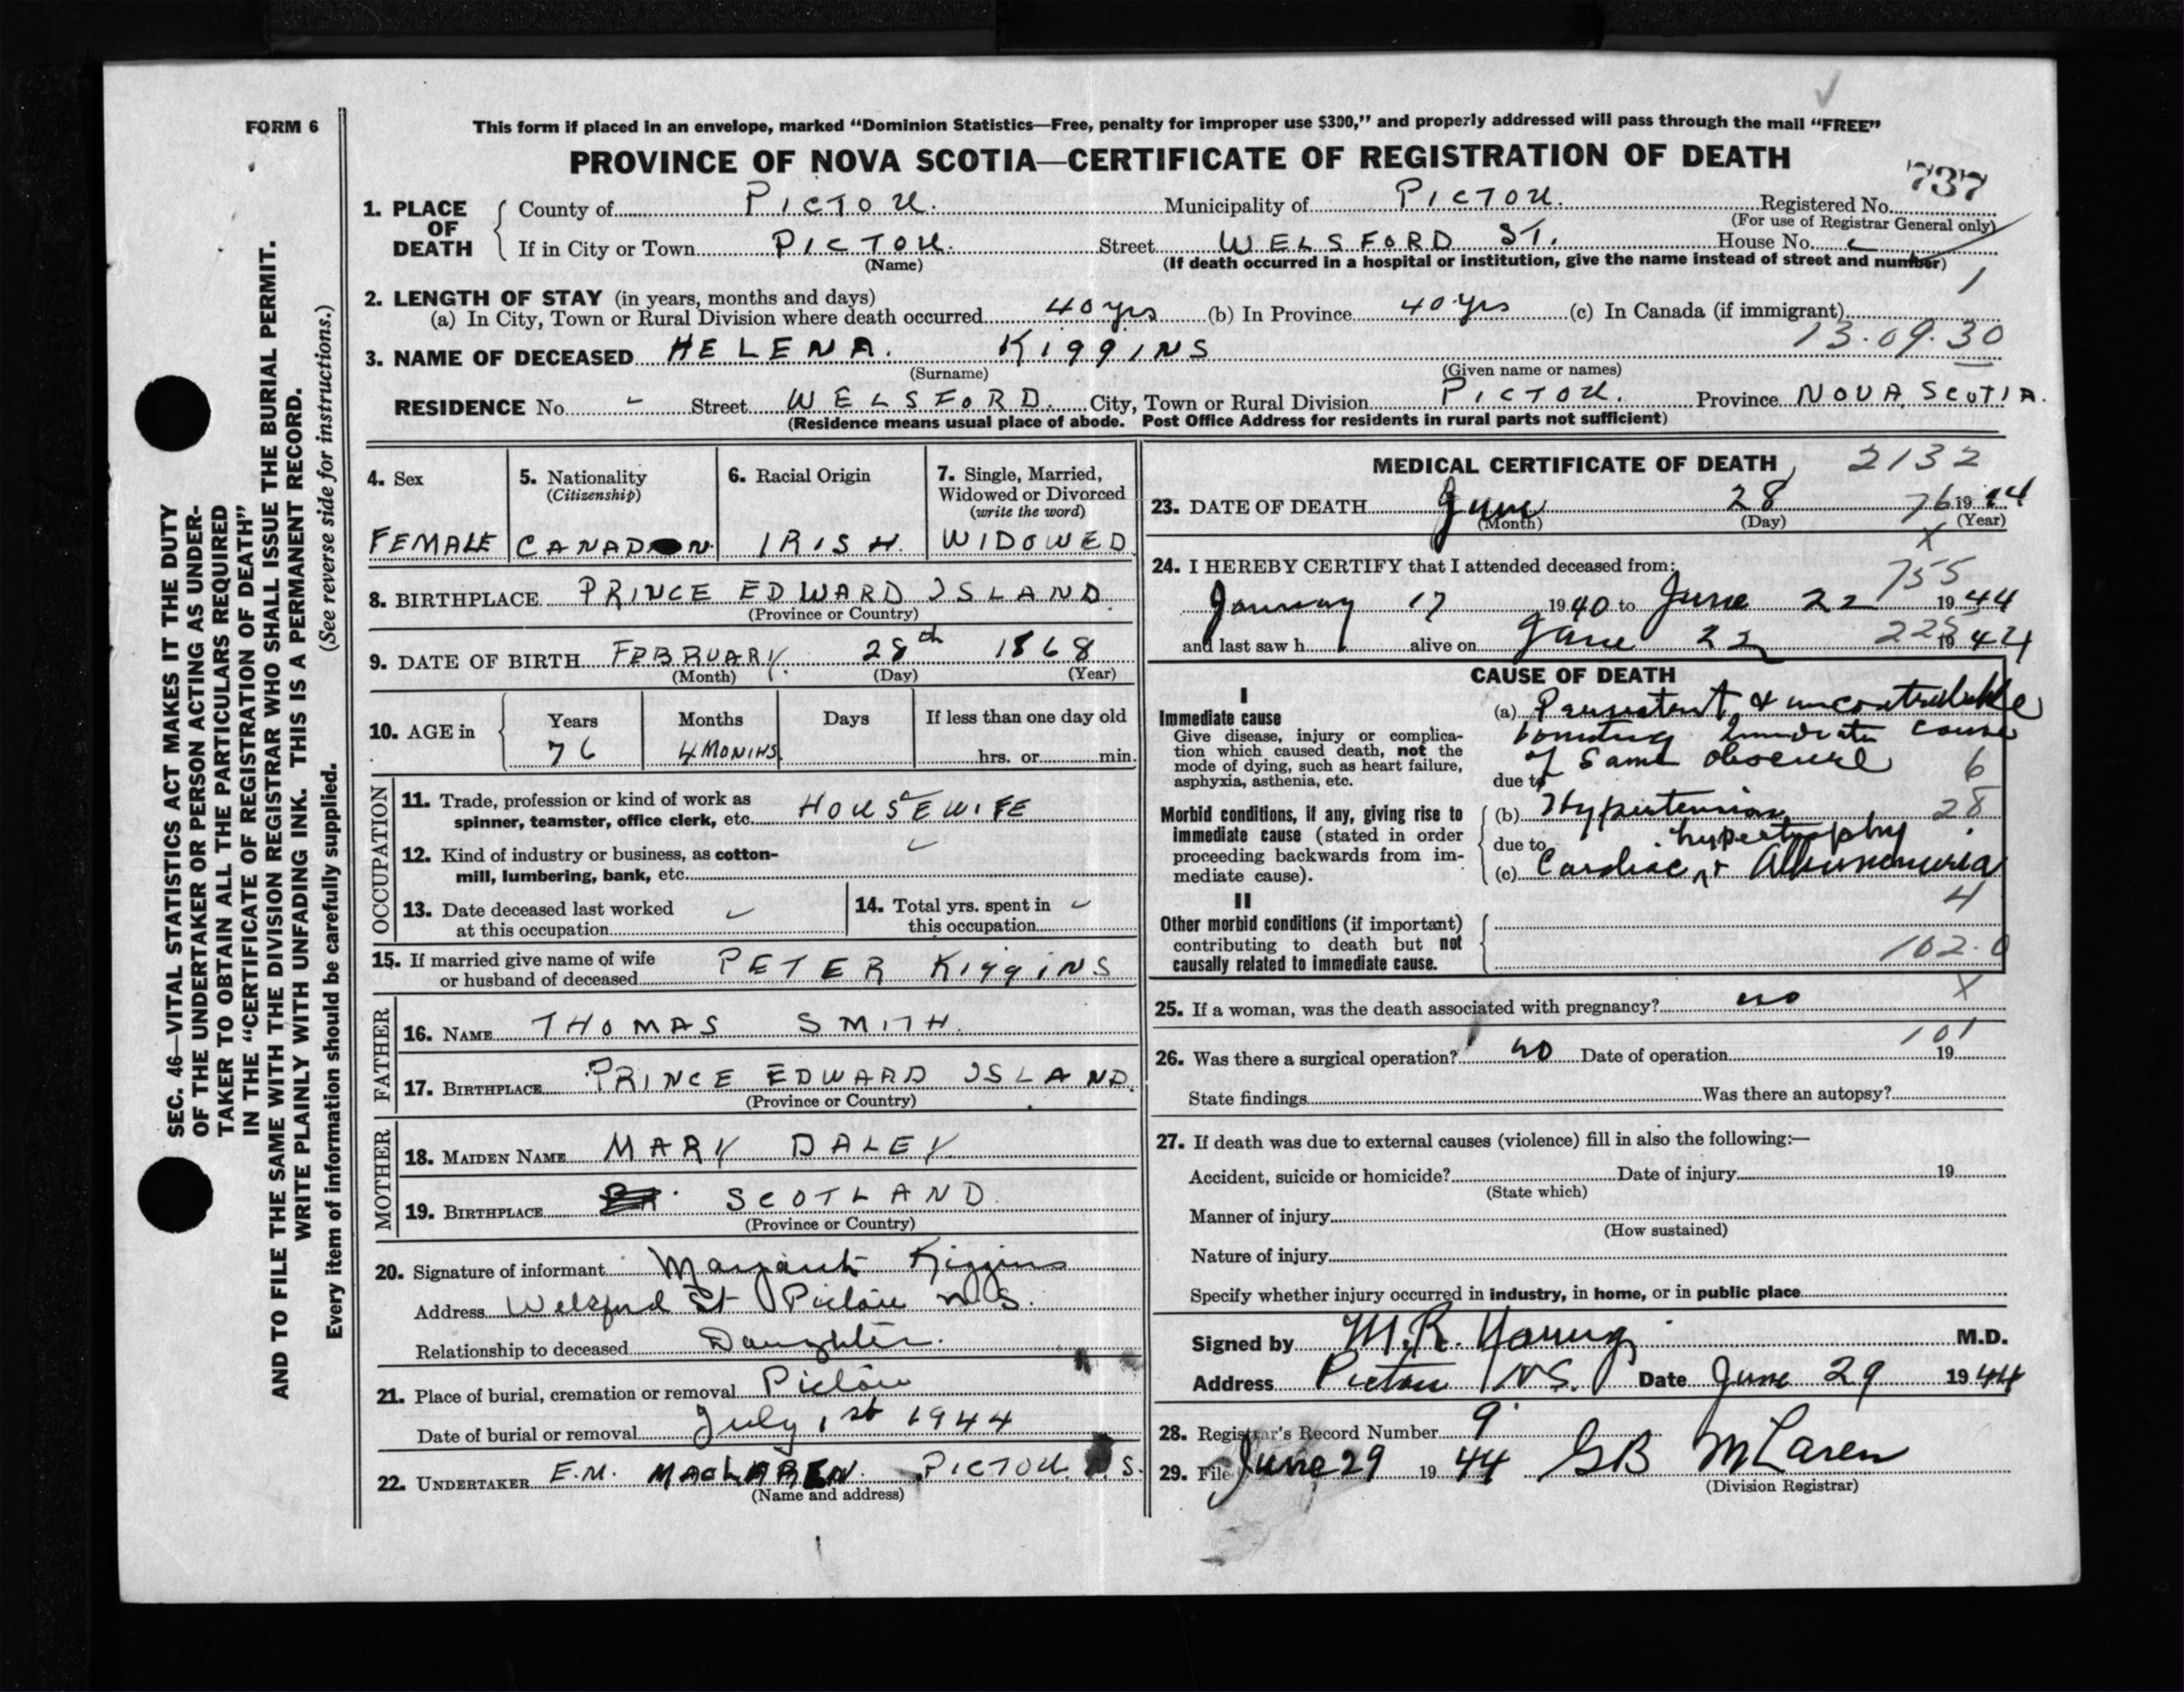 FORM 6
This form if placed in an envelope, marked “Dominion Statistics—Free, penalty for improper use $300,” and properly addressed will pass through the mail “FREE”
PROVINCE OF NOVA SCOTIA—CERTIFICATE OF REGISTRATION OF DEATH
737
1. PLACE OF DEATH { County of PICTOU. Municipality of PICTOU. Registered No.
(For use of Registrar General only)
If in City or Town PICTOU. Street WELSFORD ST. House No.
(Name) (If death occurred in a hospital or institution, give the name instead of street and number)
1
2. LENGTH OF STAY (in years, months and days)
(a) In City, Town or Rural Division where death occurred 40 yrs (b) In Province 40 yrs (c) In Canada (if immigrant)
13.09.30
3. NAME OF DECEASED HELENA. KIGGINS
(Surname) (Given name or names)
RESIDENCE No. - Street WELSFORD. City, Town or Rural Division PICTOU. Province NOVA SCOTIA.
(Residence means usual place of abode. Post Office Address for residents in rural parts not sufficient)
4. Sex
FEMALE
5. Nationality
(Citizenship)
CANADIAN
6. Racial Origin
IRISH.
7. Single, Married, Widowed or Divorced
(write the word)
WIDOWED
8. BIRTHPLACE PRINCE EDWARD ISLAND
(Province or Country)
9. DATE OF BIRTH FEBRUARY 28th 1868
(Month) (Day) (Year)
10. AGE in { Years Months Days If less than one day old
76 4 MONTHS hrs. or min.
OCCUPATION
11. Trade, profession or kind of work as
spinner, teamster, office clerk, etc. HOUSEWIFE
12. Kind of industry or business, as cotton-
mill, lumbering, bank, etc.
13. Date deceased last worked
at this occupation
14. Total yrs. spent in
this occupation
15. If married give name of wife
or husband of deceased PETER KIGGINS
FATHER
16. NAME THOMAS SMITH.
17. BIRTHPLACE PRINCE EDWARD ISLAND.
(Province or Country)
MOTHER
18. MAIDEN NAME MARY DALEY
19. BIRTHPLACE SCOTLAND.
(Province or Country)
20. Signature of informant Margaret Kiggins
Address Welsford St Pictou N.S.
Relationship to deceased Daughter.
21. Place of burial, cremation or removal Pictou
Date of burial or removal July 1st 1944
22. UNDERTAKER E.M. MACLAREN. PICTOU N S.
(Name and address)
MEDICAL CERTIFICATE OF DEATH 2132
23. DATE OF DEATH June 28 76 1944
(Month) (Day) (Year)
x
24. I HEREBY CERTIFY that I attended deceased from:
755
January 17 1940 to June 22 1944
and last saw h alive on June 22 225 1944
CAUSE OF DEATH
I
Immediate cause
Give disease, injury or complica-
tion which caused death, not the
mode of dying, such as heart failure,
asphyxia, asthenia, etc.
(a) Persistent & uncontrollable
vomiting Immediate cause
of same obscure 6
due to
Morbid conditions, if any, giving rise to
immediate cause (stated in order
proceeding backwards from im-
mediate cause).
(b) Hypertension 28
due to hypertrophy
(c) Cardiac & Albumenuria
4
II
Other morbid conditions (if important)
contributing to death but not
causally related to immediate cause.
102.0
x
25. If a woman, was the death associated with pregnancy? no
101
26. Was there a surgical operation? no Date of operation 19
State findings Was there an autopsy?
27. If death was due to external causes (violence) fill in also the following:—
Accident, suicide or homicide? Date of injury 19
(State which)
Manner of injury
(How sustained)
Nature of injury
Specify whether injury occurred in industry, in home, or in public place
Signed by M.R. Young M.D.
Address Pictou N.S. Date June 29 1944
28. Registrar's Record Number 9
29. File June 29 1944 GB McLaren
(Division Registrar)
SEC. 46—VITAL STATISTICS ACT MAKES IT THE DUTY
OF THE UNDERTAKER OR PERSON ACTING AS UNDER-
TAKER TO OBTAIN ALL THE PARTICULARS REQUIRED
IN THE “CERTIFICATE OF REGISTRATION OF DEATH”
AND TO FILE THE SAME WITH THE DIVISION REGISTRAR WHO SHALL ISSUE THE BURIAL PERMIT.
WRITE PLAINLY WITH UNFADING INK. THIS IS A PERMANENT RECORD.
Every item of information should be carefully supplied. (See reverse side for instructions.)